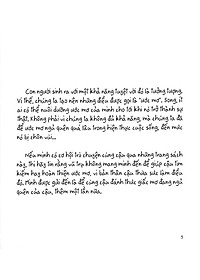 Con người sinh ra với một khả năng tuyệt vời đó là tưởng tượng.
Vì thế, chúng ta tạo nên những điều được gọi là "ước mơ". Song, ít
ai có thể nuôi dưỡng ước mơ của mình cho tới khi nó trở thành sự
thật. Không phải vì chúng ta không đủ khả năng, mà là chúng ta đã
để ước mơ ngủ quên quá lâu trong hiện thực cuộc sống, đến mức
nó bị chôn vùi...
Nếu mình có cơ hội trò chuyện cùng cậu qua những trang sách
này, thì hãy tin rằng vũ trụ không mang mình đến để giúp cậu tìm
kiếm hay hoàn thiện ước mơ, vì bản thân cậu thừa sức làm điều
đó. Mình được gửi đến là để cùng cậu đánh thức giấc mơ đang ngủ
quên của cậu, thêm một lần nữa.